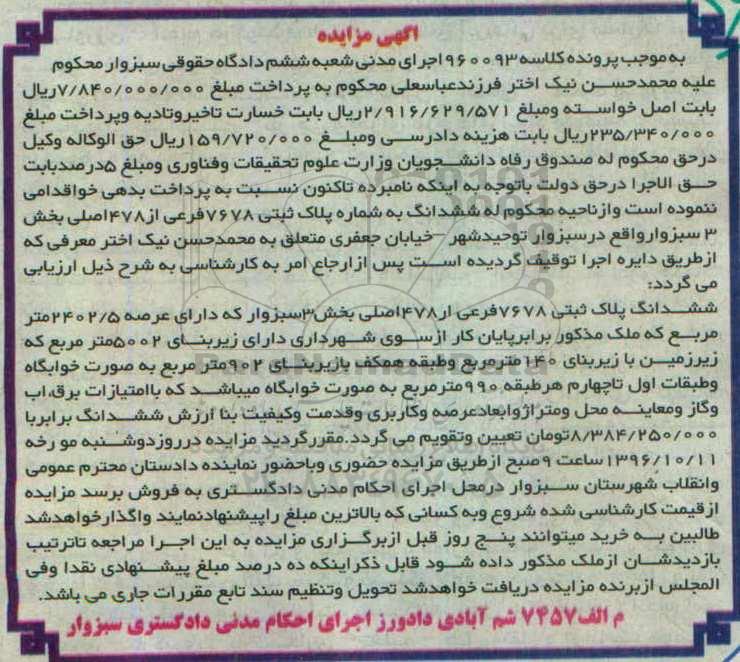 آگهی مزایده
به موجب پرونده کلاسه ۹۶۰۰۹۳ اجرای مدنی شعبه ششم دادگاه حقوقی سبزوار محکوم
علیه محمدحسن نیک اختر فرزندعباسعلی محکوم به پرداخت مبلغ ۷/۸۴۰/۰۰۰/۰۰۰ریال
بابت اصل خواسته ومبلغ ۲/۹۱۶/۶۲۹/۵۷۱ریال بابت خسارت تاخیروتادیه وپرداخت مبلغ
۲۳۵/۳۴۰/۰۰۰ریال بابت هزینه دادرسی ومبلغ ۱۵۹/۷۲۰/۰۰۰ریال حق الوکاله وکیل
درحق محکوم له صندوق رفاه دانشجویان وزارت علوم تحقیقات وفناوری ومبلغ ۵درصدبابت
حق الاجرا درحق دولت باتوجه به اینکه نامبرده تاکنون نسبت به پرداخت بدهی خواقدامی
ننموده است وازناحیه محکوم له ششدانگ به شماره پلاک ثبتی ۷۶۷۸فرعی از۴۷۸اصلی بخش
۳ سبزوارواقع درسبزوار توحیدشهر –خیابان جعفری متعلق به محمدحسن نیک اختر معرفی که
ازطریق دایره اجرا توقیف گردیده است پس ازارجاع امر به کارشناسی به شرح ذیل ارزیابی
می گردد:
ششدانگ پلاک ثبتی ۷۶۷۸فرعی از۴۷۸اصلی بخش۳سبزوار که دارای عرصه ۲۴۰۲/۵متر
مربع که ملک مذکور برابرپایان کار ازسوی شهرداری دارای زیربنای ۵۰۰۲متر مربع که
زیرزمین با زیربنای ۱۴۰مترمربع وطبقه همکف بازیربنای ۹۰۲متر مربع به صورت خوابگاه
وطبقات اول تاچهارم هرطبقه ۹۹۰مترمربع به صورت خوابگاه میباشد که باامتیازات برق،اب
وگاز ومعاینه محل ومتراژوابعادعرصه وکاربری وقدمت وکیفیت بنا ارزش ششدانگ برابربا
۸/۳۸۴/۲۵۰/۰۰۰تومان تعیین وتقویم می گردد.مقررگردید مزایده درروزدوشنبه مو رخه
۱۳۹۶/۱۰/۱۱ساعت ۹صبح ازطریق مزایده حضوری وباحضور نماینده دادستان محترم عمومی
وانقلاب شهرستان سبزوار درمحل اجرای احکام مدنی دادگستری به فروش برسد مزایده
ازقیمت کارشناسی شده شروع وبه کسانی که بالاترین مبلغ راپیشنهادنمایند واگذارخواهدشد
طالبین به خرید میتوانند پنج روز قبل ازبرگزاری مزایده به این اجرا مراجعه تاترتیب
بازدیدشان ازملک مذکور داده شود قابل ذکراینکه ده درصد مبلغ پیشنهادی نقدا وفی
المجلس ازبرنده مزایده دریافت خواهدشد تحویل وتنظیم سند تابع مقررات جاری می باشد.
م الف۷۴۵۷ شم آبادی دادورز اجرای احکام مدنی دادگستری سبزوار